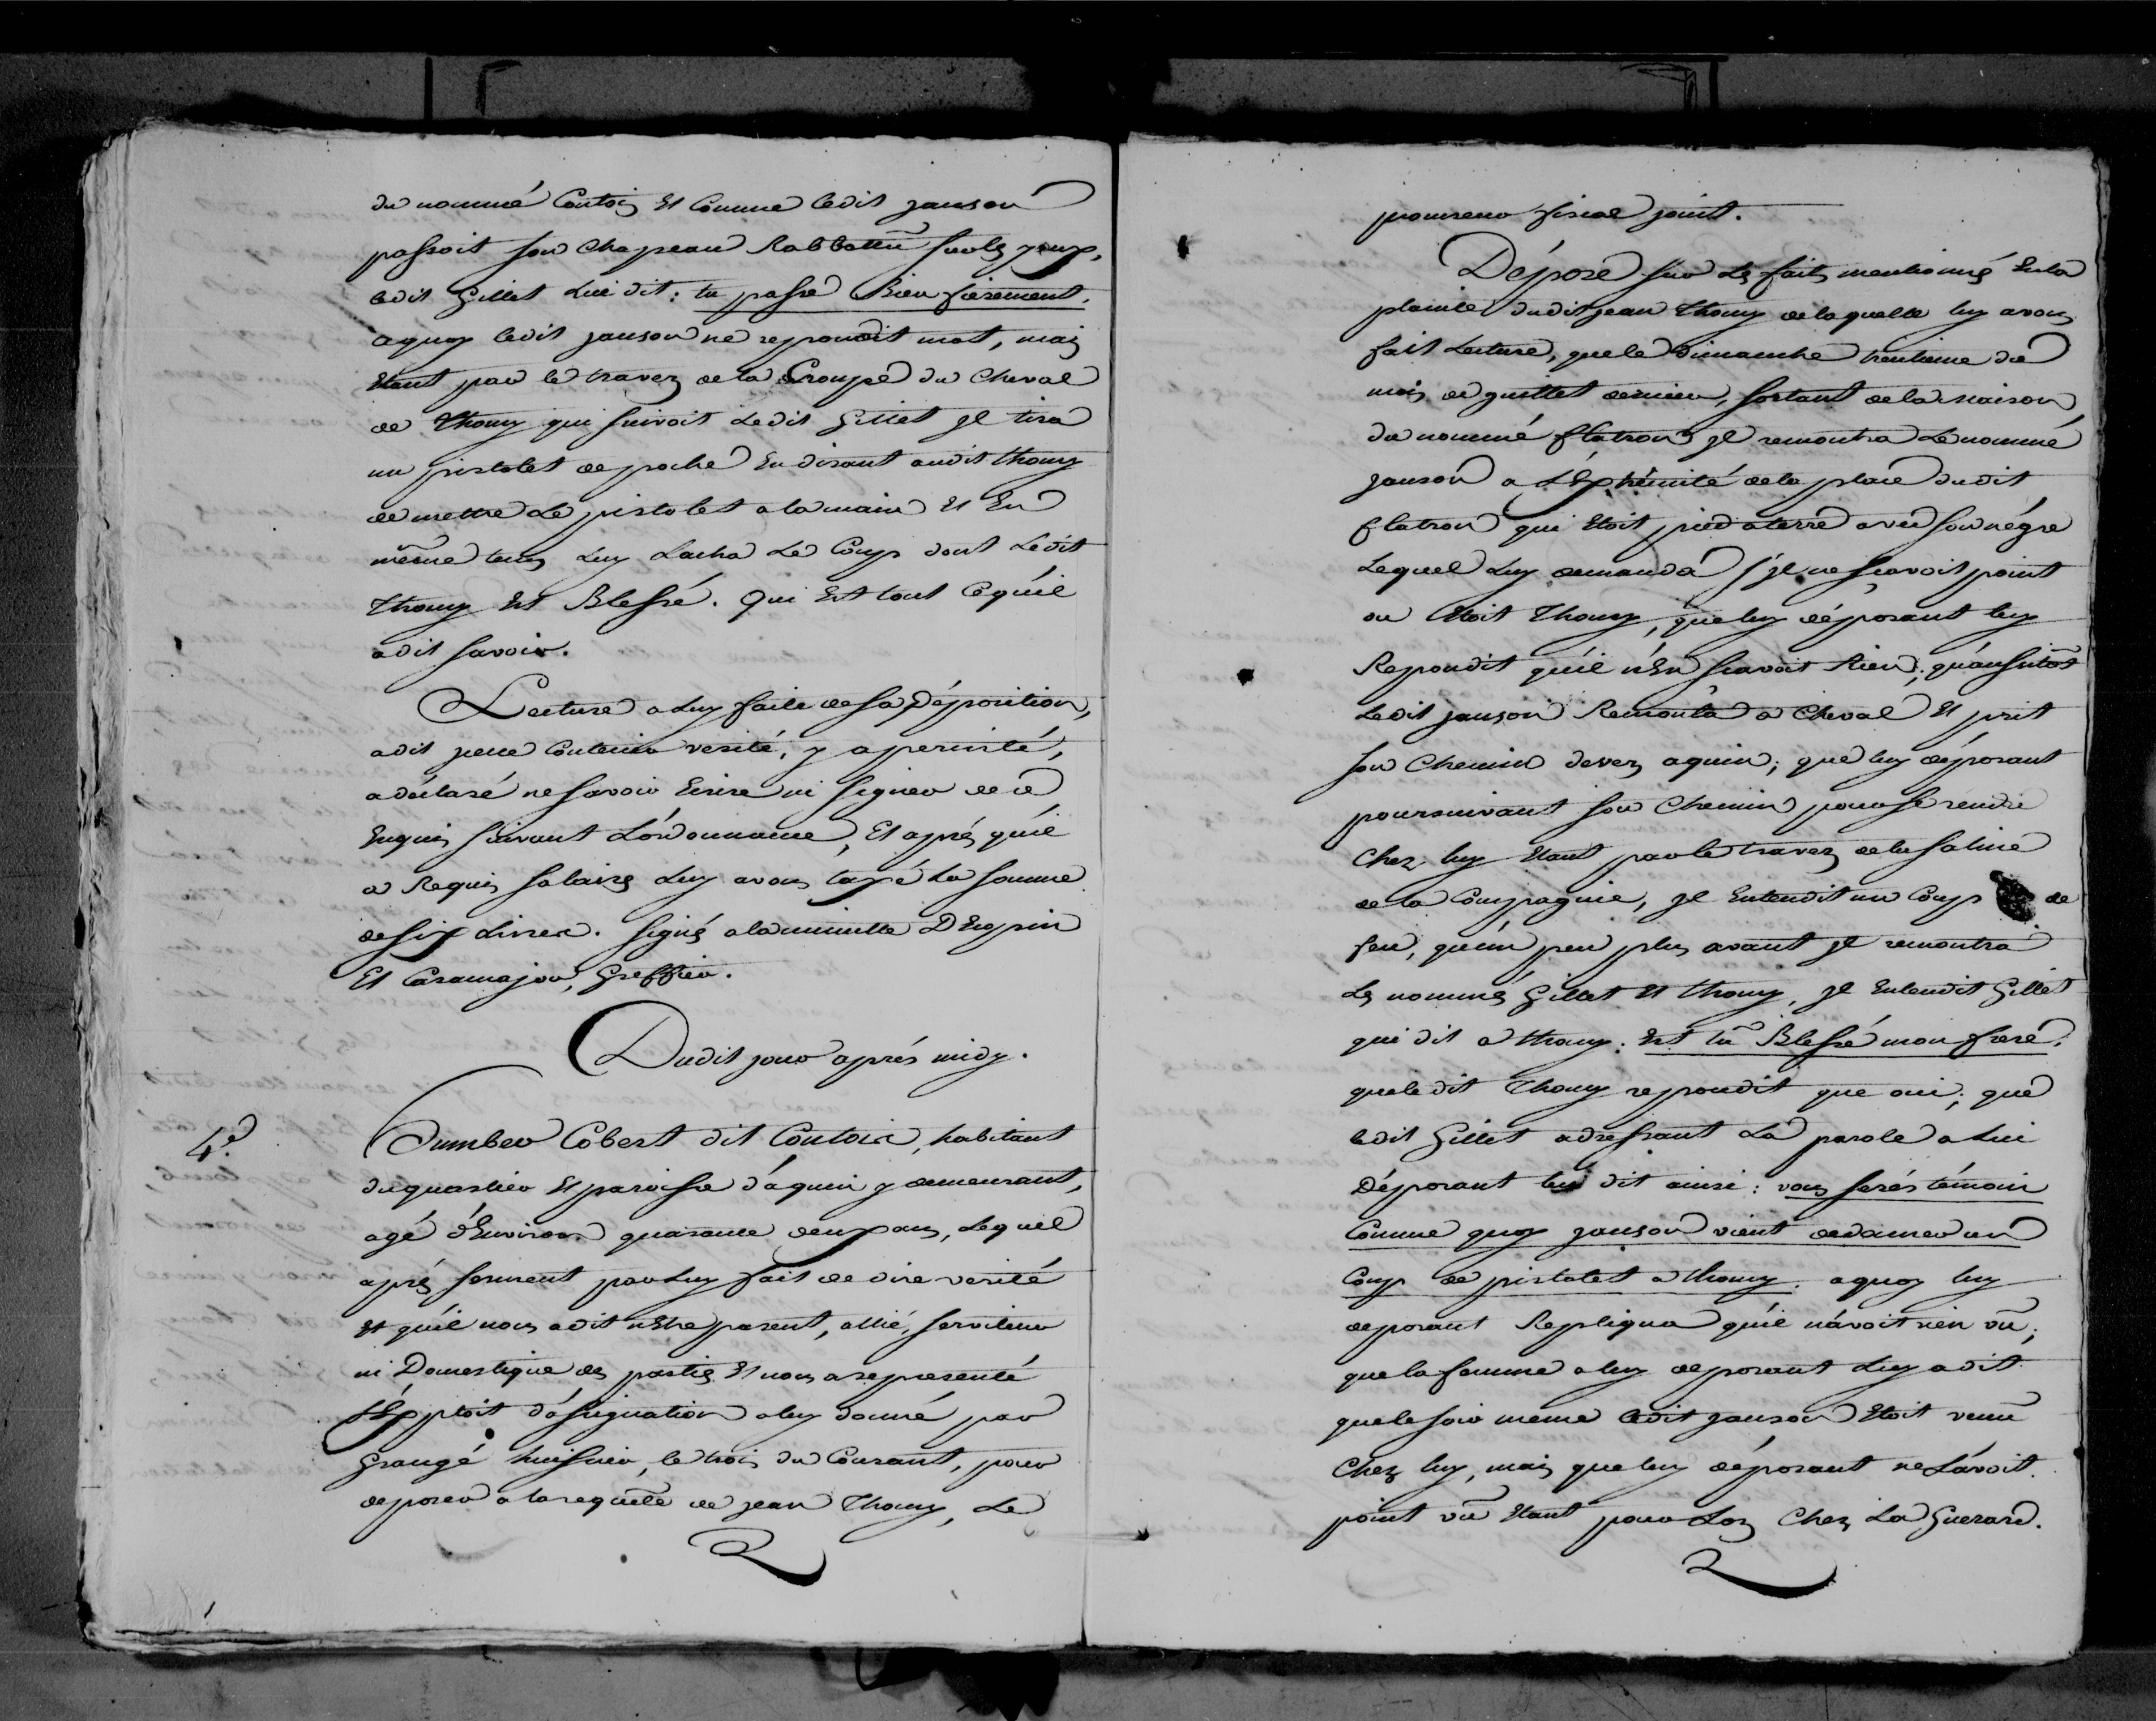 du nommé Contois Et Comme ledit janson
passoit son Chapeau Rabbattû sur les yeux,
ledit Gillet Lui dit: tu passe Bien fierement.
aquoy ledit janson ne repondit mot, mais
Etant par le travers de la Croupe du Cheval
de Thomy qui suivoit Ledit Gillet jl tira
un pistolet de poche En disant audit thomy
de mettre Le pistolet a la main Et En
même tems Luy Lacha Le Coup dont Ledit
Thomy Est Blessé. Qui Est tout Cequ'il
a dit savoir.
Lecture a Luy faite de sa Déposition,
a dit jcelle Contenir verité, y a persisté,
a déclaré ne savoir Ecrire ni signer de ce
Enquis suivant L'ordonnance, Et aprés qu'il
a Requis salaire Luy avons taxé La somme
de six Livres. signé a la minutte
Et Caramajor, Greffier.
Dudit jour aprés midy.
4.e
Cobert dit Contois, habitant
du quartier Et paroisse d'aquin y demeurant,
agé d'Environ quarante deux ans, Lequel
aprés serment par Luy fait de dire verité
Et qu'il nous a dit n'Etre parent, allié, serviteur
ni Domestique des parties Et nous a representé
L'Exploit d'assignation a luy donné par
Grangé huissier, le trois du Courant, pour
deposer a la requête de jean Thomy, Le
procureur fiscal joint.
Déposé sur Les faits mentionnés En la
plainte dudit jean Thomy de laquelle luy avons
fait Lecture, que le Dimanche trentieme du
mois de juillet dernier, sortant de la maison
du nommé flatron jl rencontra Le nommé
janson a L'Extrémité de la place dudit
flatron qui Etoit pied a terre avec son négre
Lequel Luy demanda s'jl ne sçavoit point
ou Etoit Thomy, que luy déposant luy
Repondit qu'il n'En sçavoit Rien; qu'aussitôt
Ledit janson Remonta a Cheval Et prit
son Chemin devers aquin; que luy déposant
poursuivant son Chemin pour se rendre
Chez luy Etant par le travers de la saline
de la Compagnie, jl Entendit un Coup de
feu, qu'un peu plus avant jl rencontra
Les nommés Gillet Et thomy, jl Entendit Gillet
qui dit a thomy: Est tû Blessé mon frere.
que ledit Thomy repondit que oui; que
ledit Gillet adressant La parole a Lui
Déposant luy dit ainsi: vous serés témoin
Comme quoy janson vient de donner un
Coup de pistolet a thomy. aquoy luy
deposant Repliqua qu'il n'avoit rien vû;
que la femme a luy deposant Luy a dit
que le soir même ledit janson Etoit venû
Chez luy, mais que luy déposant ne L'avoit
point vû Etant pour Lors Chez La Guerard.